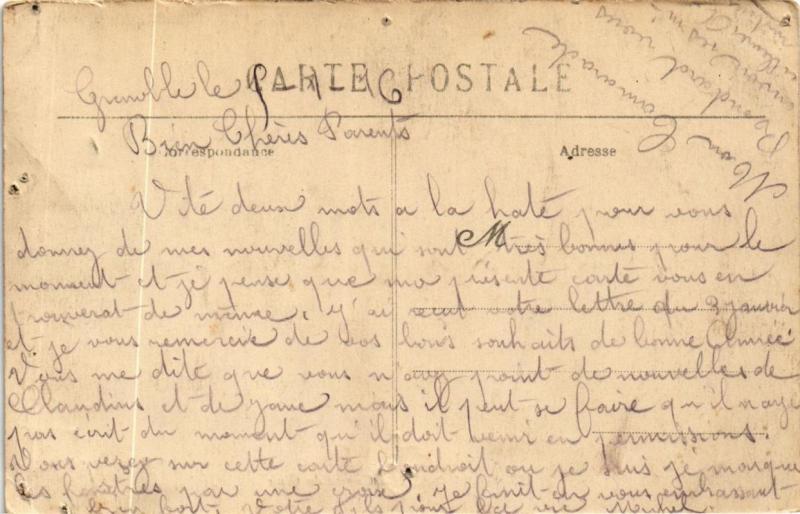 CARTE POSTALE
Grenoble le 9-1-16
Bien Chères Parents
Correspondance
Adresse
Vité deux mots a la haté pour vous
donnez de mes nouvelles qui sont très bonnes pour le
moment et je pense que ma présente carté vous en
trouverat de même, j'ai recut votre lettre du 3 janvier
et je vous remercie de vos bons souhaits de bonne Année
Vous me dité que vous n'avez point de nouvelles de
Claudius et de mais il peut se faire qu'il n'aye
pas écrit du moment qu'il doit venir en permissions.
Vous verez sur cette carte l'endroit ou je suis je marque
les fenétres par une croix, je finit en vous embrassant
bien forts Votre fils pour la vie Michel
Mon Camarade
vous
M